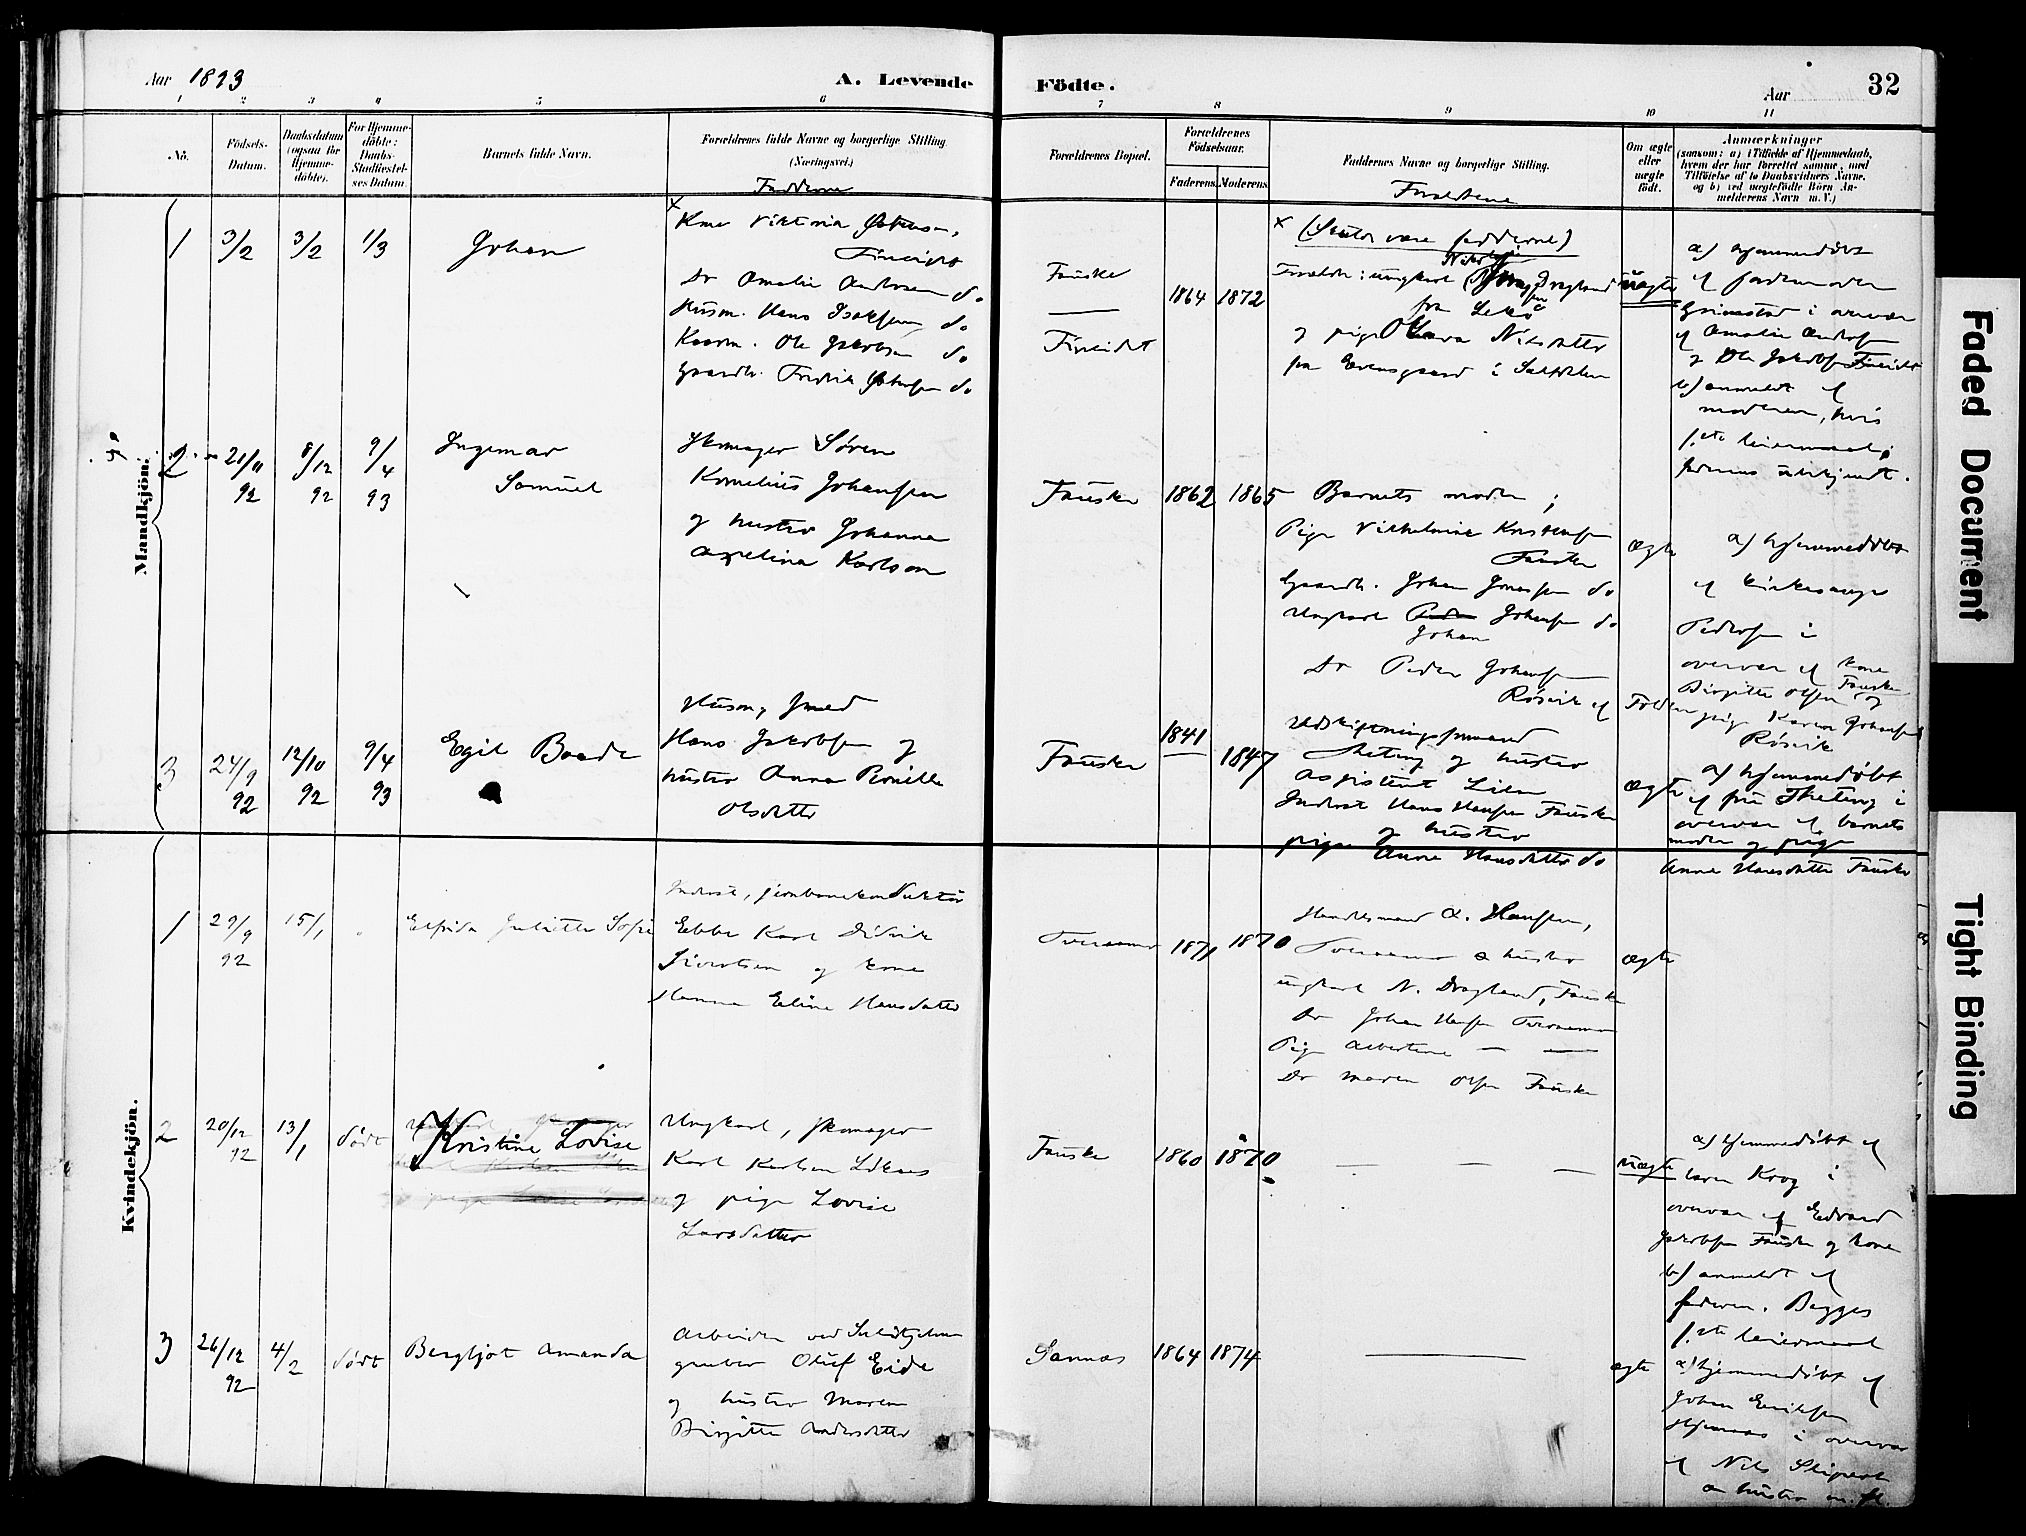 Aar 1893
A. Levende
Födte.
Aar
32
1 2 3 4 5 6 7 8 9 10 11
No.
Födsels-
Datum.
Daabsdatum
(ogsaa för
Hjemme-
döbte).
For Hjemme-
döbte:
Daabs-
Stadfæstel-
ses Datum.
Barnets fulde Navn.
Forældrenes fulde Navne og borgerlige Stilling.
(Næringsvei.)
Fadderne
Forældrenes Bopæl.
Forældrenes
Födselsaar.
Faderens. Moderens.
Faddernes Navne og borgerlige Stilling.
Forældrene
Om ægte
eller
uægte
födt.
Anmærkninger
(saasom: a) i Tilfælde af Hjemmedaab,
hvem der har forrettet samme, med
Tilföielse af to Daabsvidners Navne,
og b) ved uægtefödte Börn An-
melderens Navn m. V.)
Mandkjön:
1 3/2 3/2 1/3 Johan
x
Kone Viktoria
Finneidet
Do Amalie Andersen do
Husm. Hans Isaksen do
Kaarm. Ole Jakobsen do
Gaardb. Fredrik Johansen do
Fauske
Fineidet
1864 1872
x (Skulde være fadderne)
Forældre: ungkarl
fra
og pige Nilsdatter
paa Evensgaard i Saltdalen
uægte
a) hjemmedöbt
af jordemoder
Grimstad i overvær
af Amalie Andersen
og Ole Jakobsen Fineidet
b) anmeldt af
moderen, hvis
1ste leiermaal,
faderens ubekjendt.
2 21/11 92 8/12 92 9/4 93
Ingemar
Samuel
Skomager Sören
Kornelius Johansen
og hustru Johanna
Axelina Karlson
Fauske 1862 1865
Barnets moder;
Pige Vilhelmine Kristensen
Fauske
Gaardb. Johan Jonassen do
Ungkarl Peder Johansen do
Johan
Do Peder Johansen
Rösvik af Folden
ægte
a) hjemmedöbt
af kirkesanger
Pedersen i
overvær af kone
Birgitte Olsen Fauske og
pige Karen Johansen
Rösvik
3 24/9 92 12/10 92 9/4 93
Egil Baade
Husm., smed
Hans Jakobsen og
hustru Anna Pernille
Olsdatter
Fauske 1841 1847
Udskiftningsformand
Sketing og hustru
Assistent Lien
Inderst Hans Hansen Fauske
og hustru
pige Anne Hansdatter do
ægte
a) hjemmedöbt
af fru Sketing i
overvær af barnets
moder og pige
Anna Hansdatter Fauske
Kvindekjön.
1 29/9 92 15/1
Elfrida Juliette Sofie
Inderst, jernbanekonduktör
Ebbe Karl Didrik
Sivertsen og kone
Hanna Eline Hansdatter
Tveraamo 1871 1870
Handelsmand A. Hansen,
Tveraamo & hustru
ungkarl N. Dragland, Fauske
Do Johan Hansen Tveraamo
Pige Albertine — —
Do Maren Olsen Fauske
ægte
2 20/12 92 13/1 dödt
Kristine Lovise
Ungkarl, skomager
Karl Karlsen Lökaas
og pige Lovise
Larsdatter
Fauske 1860 1870
— — —
uægte
a) hjemmedöbt af
lærer Krog i
overvær af Edvard
Jakobsen Fauske og kone
b) anmeldt af
faderen. Begges
1ste leiermaal
3 26/12 92 4/2 dödt
Bergljot Amanda
Arbeider ved Sulitjelma
gruber Oluf Eide
og hustru Maren
Birgitte Andersdatter
Sannæs 1864 1874
ægte
a) hjemmedöbt af
Johan Eriksen
i overvær
af Nils
og hustru m. fl.
Faded Document
Tight Binding